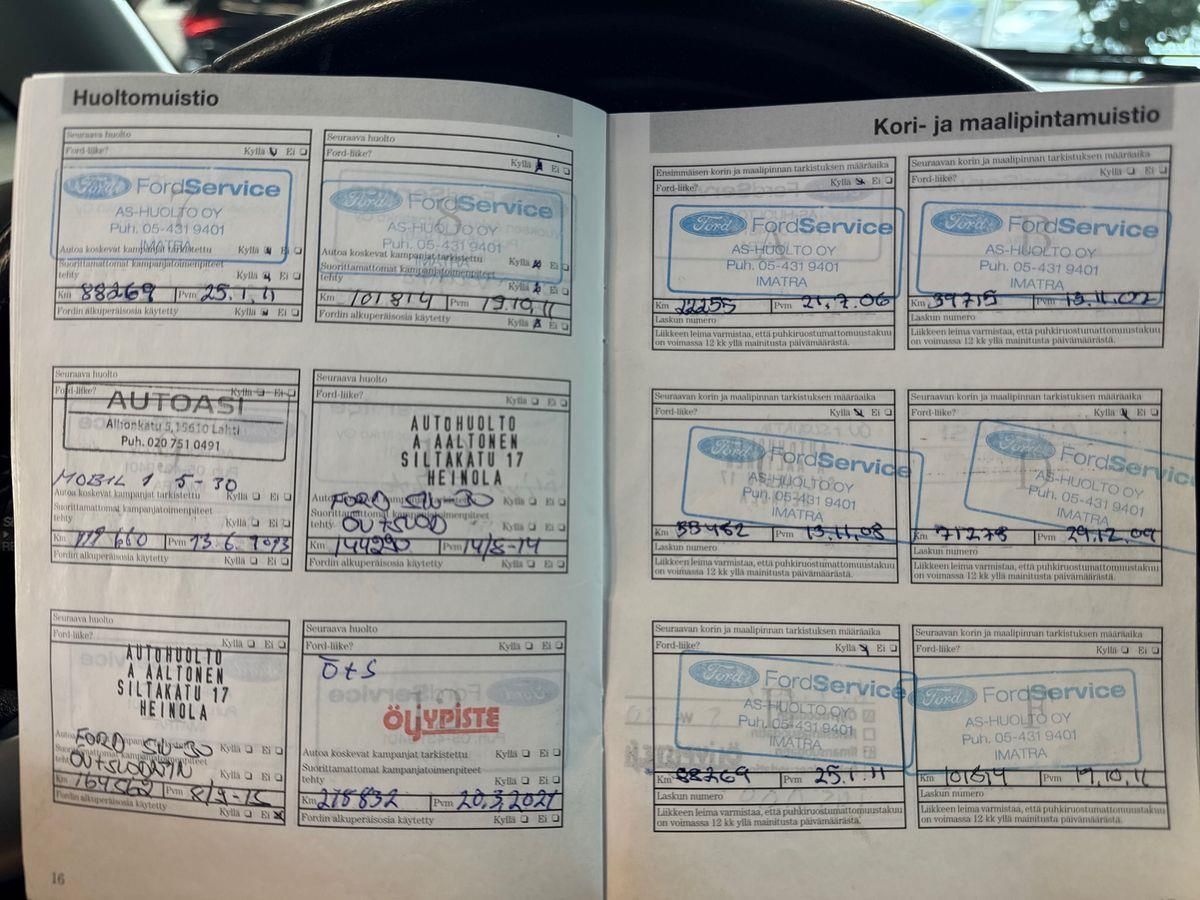 Huoltomuistio
Seuraava huolto
Ford-liike? Kyllä Ei
Ford FordService
AS-HUOLTO OY
Puh. 05-431 9401
IMATRA
Autoa koskevat kampanjat tarkistettu Kyllä Ei
Suorittamattomat kampanjatoimenpiteet
tehty Kyllä Ei
Km 88269 Pvm 25.1.11
Fordin alkuperäisosia käytetty Kyllä Ei
Seuraava huolto
Ford-liike? Kyllä Ei
Ford FordService
AS-HUOLTO OY
Puh. 05-431 9401
IMATRA
Autoa koskevat kampanjat tarkistettu Kyllä Ei
Suorittamattomat kampanjatoimenpiteet
tehty Kyllä Ei
Km 101814 Pvm 19.10.11
Fordin alkuperäisosia käytetty Kyllä Ei
Seuraava huolto
Ford-liike? Kyllä Ei
AUTOASI
Alhonkatu 5, 15610 Lahti
Puh. 020 751 0491
MOBIL 1 5-30
Autoa koskevat kampanjat tarkistettu Kyllä Ei
Suorittamattomat kampanjatoimenpiteet
tehty Kyllä Ei
Km Pvm 13.6.2013
Fordin alkuperäisosia käytetty Kyllä Ei
Seuraava huolto
Ford-liike? Kyllä Ei
AUTOHUOLTO
A AALTONEN
SILTAKATU 17
HEINOLA
FORD 5W-30
Autoa koskevat kampanjat tarkistettu Kyllä Ei
Suorittamattomat kampanjatoimenpiteet
tehty Kyllä Ei
Km 144290 Pvm 14/8-14
Fordin alkuperäisosia käytetty Kyllä Ei
Seuraava huolto
Ford-liike? Kyllä Ei
AUTOHUOLTO
A AALTONEN
SILTAKATU 17
HEINOLA
FORD 5W-30
Kyllä Ei
Kyllä Ei
Km Pvm 8/9-15
Fordin alkuperäisosia käytetty Kyllä Ei
Seuraava huolto
Ford-liike? Kyllä Ei
Ö+S
ÖLJYPISTE
Autoa koskevat kampanjat tarkistettu Kyllä Ei
Suorittamattomat kampanjatoimenpiteet
tehty Kyllä Ei
Km 218832 Pvm 20.3.2021
Fordin alkuperäisosia käytetty Kyllä Ei
16
Kori- ja maalipintamuistio
Ensimmäisen korin ja maalipinnan tarkistuksen määräaika
Ford-liike? Kyllä Ei
Ford FordService
AS-HUOLTO OY
Puh. 05-431 9401
IMATRA
Km 22255 Pvm 21.7.06
Laskun numero
Liikkeen leima varmistaa, että puhkiruostumattomuustakuu
on voimassa 12 kk yllä mainitusta päivämäärästä.
Seuraavan korin ja maalipinnan tarkistuksen määräaika
Ford-liike? Kyllä Ei
Ford FordService
AS-HUOLTO OY
Puh. 05-431 9401
IMATRA
Km 39715 Pvm 13.11.07
Laskun numero
Liikkeen leima varmistaa, että puhkiruostumattomuustakuu
on voimassa 12 kk yllä mainitusta päivämäärästä.
Seuraavan korin ja maalipinnan tarkistuksen määräaika
Ford-liike? Kyllä Ei
Ford FordService
AS-HUOLTO OY
Puh. 05-431 9401
IMATRA
Km Pvm 13.11.08
Laskun numero
Liikkeen leima varmistaa, että puhkiruostumattomuustakuu
on voimassa 12 kk yllä mainitusta päivämäärästä.
Seuraavan korin ja maalipinnan tarkistuksen määräaika
Ford-liike? Kyllä Ei
Ford FordService
AS-HUOLTO OY
Puh. 05-431 9401
IMATRA
Km 71278 Pvm 29.12.09
Laskun numero
Liikkeen leima varmistaa, että puhkiruostumattomuustakuu
on voimassa 12 kk yllä mainitusta päivämäärästä.
Seuraavan korin ja maalipinnan tarkistuksen määräaika
Ford-liike? Kyllä Ei
Ford FordService
AS-HUOLTO OY
Puh. 05-431 9401
IMATRA
Km 88269 Pvm 25.1.11
Laskun numero
Liikkeen leima varmistaa, että puhkiruostumattomuustakuu
on voimassa 12 kk yllä mainitusta päivämäärästä.
Seuraavan korin ja maalipinnan tarkistuksen määräaika
Ford-liike? Kyllä Ei
Ford FordService
AS-HUOLTO OY
Puh. 05-431 9401
IMATRA
Km 101814 Pvm 19.10.11
Laskun numero
Liikkeen leima varmistaa, että puhkiruostumattomuustakuu
on voimassa 12 kk yllä mainitusta päivämäärästä.